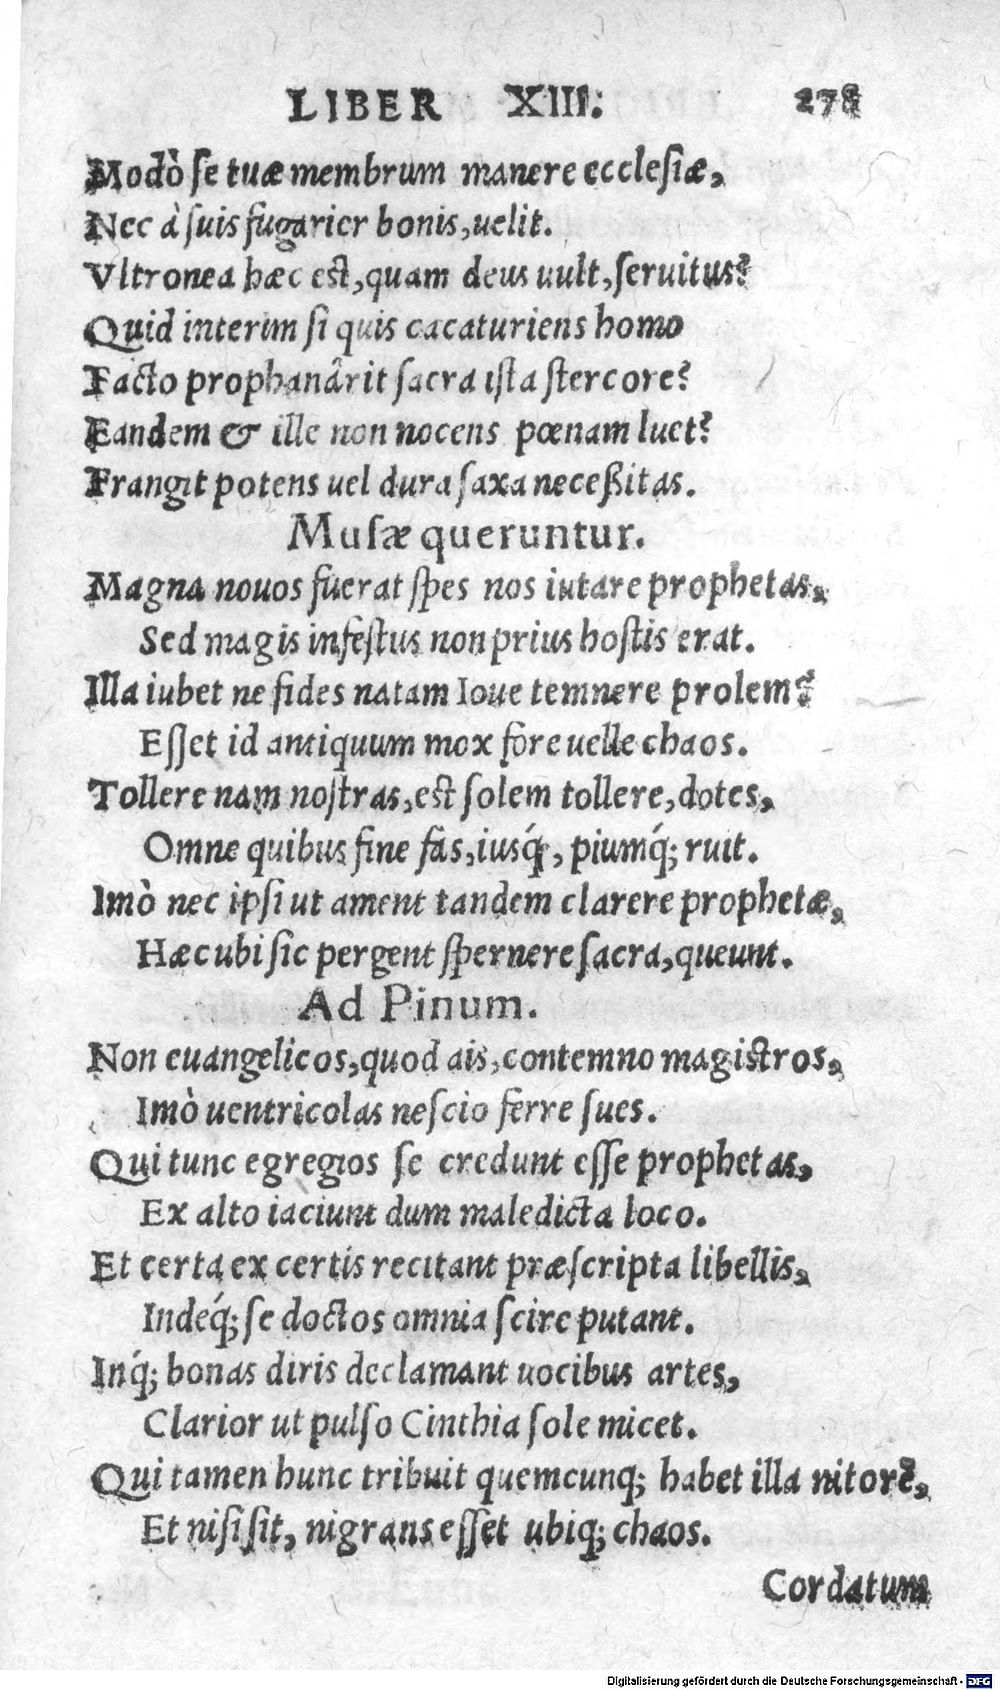 LIBER XIII. 278
Modò se tuæ membrum manere ecclesiæ,
Nec à suis fugarier bonis, uelit.
Vltronea hæc est, quam deus uult, seruitus?
Quid interim si quis cacaturiens homo
Facto prophanârit sacra ista stercore?
Eandem & ille non nocens pœnam luet?
Frangit potens uel dura saxa neceßitas.
Musæ queruntur.
Magna nouos fuerat spes nos iutare prophetas,
Sed magis infestus non prius hostis erat.
Illa iubet ne fides natam Ioue temnere prolem?
Esset id antiquum mox fore uelle chaos.
Tollere nam nostras, est solem tollere, dotes,
Omne quibus sine fas, iusq́, piumq́; ruit.
Imò nec ipsi ut ament tandem clarere prophetæ,
Hæc ubi sic pergent spernere sacra, queunt.
Ad Pinum.
Non euangelicos, quod ais, contemno magistros,
Imò uentricolas nescio ferre sues.
Qui tunc egregios se credunt esse prophetas,
Ex alto iaciunt dum maledicta loco.
Et certa ex certis recitant præscripta libellis,
Indeq́; se doctos omnia scire putant.
Inq́; bonas diris declamant uocibus artes,
Clarior ut pulso Cinthia sole micet.
Qui tamen hunc tribuit quemcunq; habet illa nitorẽ,
Et nisi sit, nigrans esset ubiq; chaos.
Cordatum
Digitalisierung gefördert durch die Deutsche Forschungsgemeinschaft - DFG